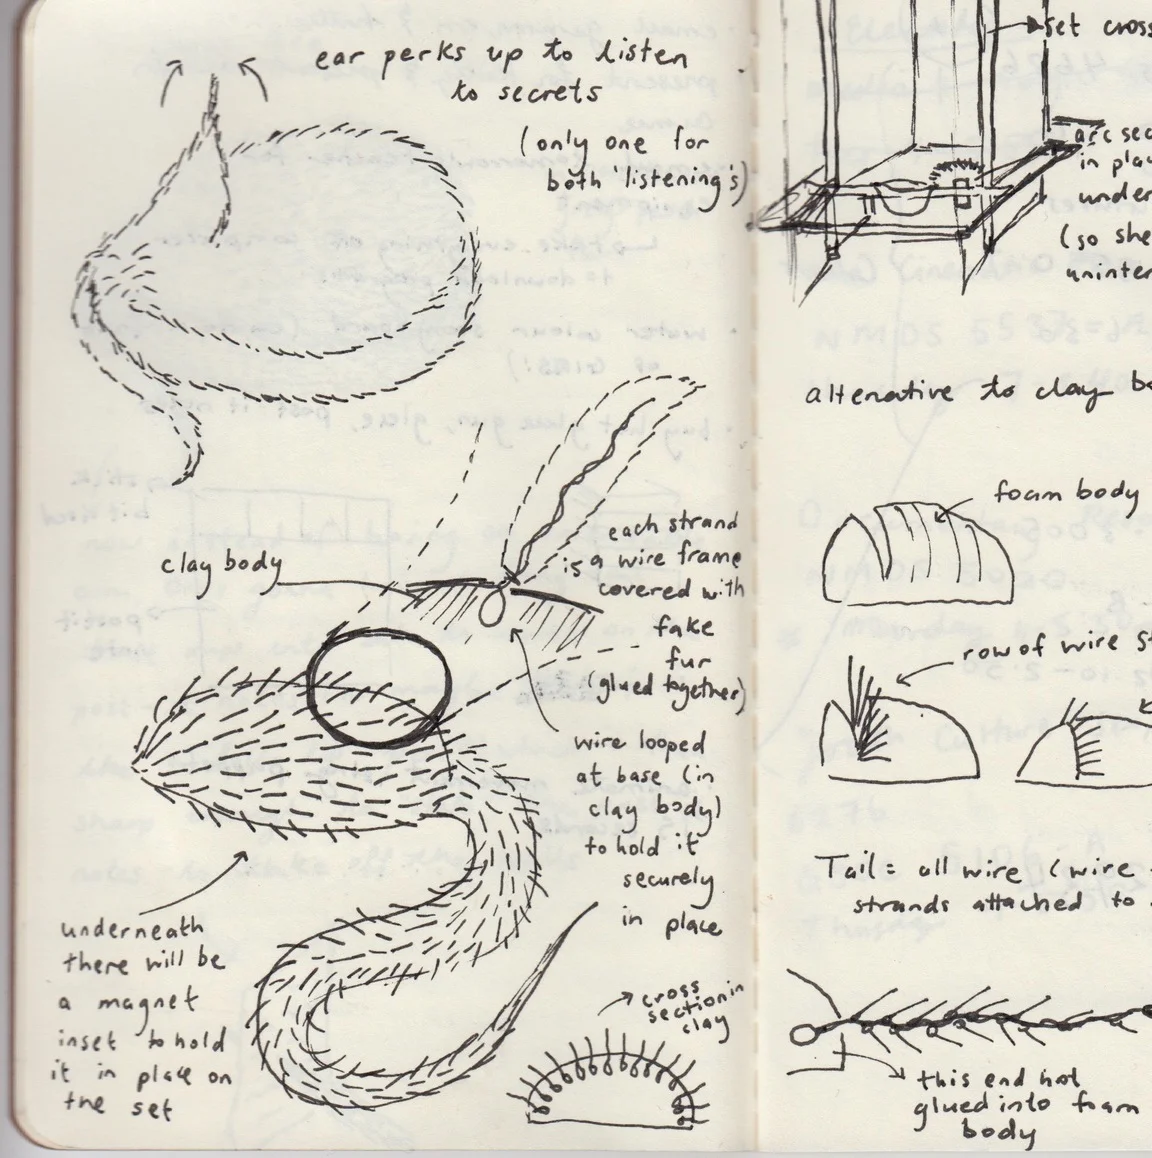 ear perks up to listen
to secrets
(only one for
both 'listening's)
clay body
each strand
is a wire frame
covered with
fake
fur
(glued together)
wire looped
at base (in
clay body)
to hold it
securely
in place
underneath
there will be
a magnet
inset to hold
it in place on
the set
cross
section in
clay
set cross
arc sec
in play
under
(so she
uninter
alternative to clay bo
foam body
row of wire st
Tail = all wire (wire
strands attached to
this end hot
glued into foam
body